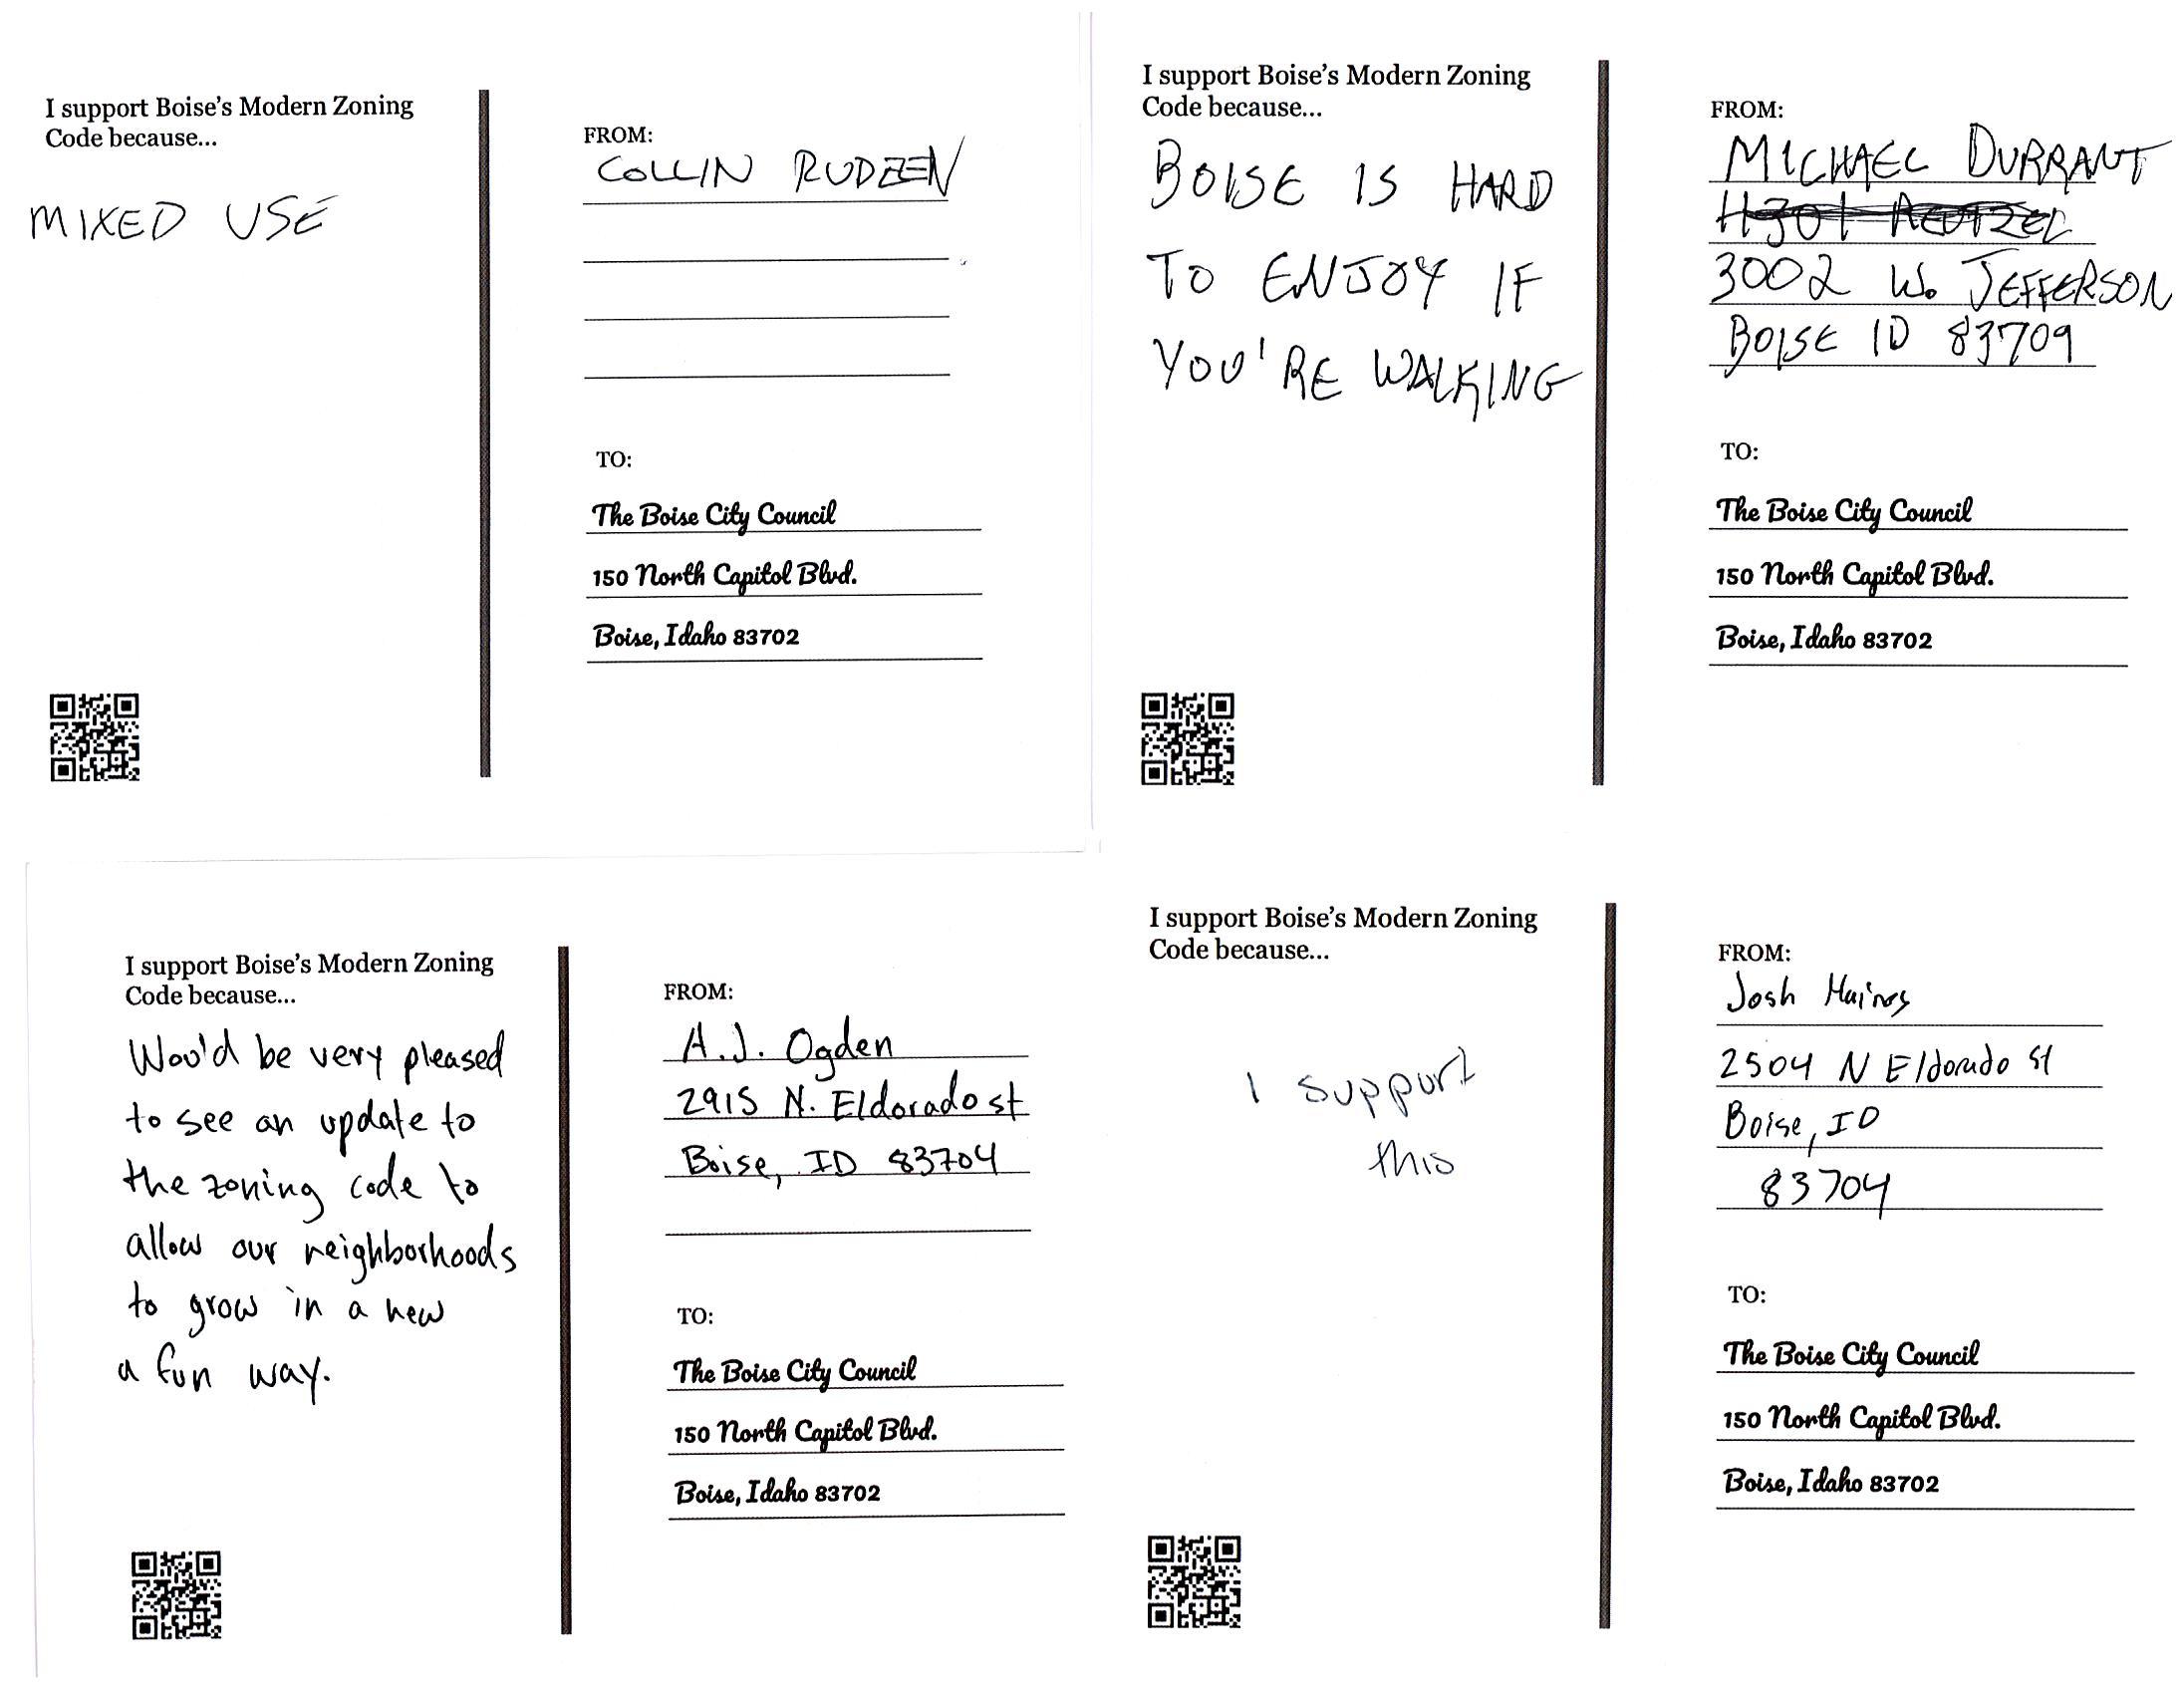 I support Boise's Modern Zoning
Code because...
MIXED USE
FROM:
COLLIN RUDZEN
TO:
The Boise City Council
150 North Capitol Blvd.
Boise, Idaho 83702
I support Boise's Modern Zoning
Code because...
BOISE IS HARD
TO ENJOY IF
YOU'RE WALKING
FROM:
MICHAEL DURRANT
3002 W. JEFFERSON
BOISE ID 83709
TO:
The Boise City Council
150 North Capitol Blvd.
Boise, Idaho 83702
I support Boise's Modern Zoning
Code because...
Would be very pleased
to see an update to
the zoning code to
allow our neighborhoods
to grow in a new
a fun way.
FROM:
A.J. Ogden
2915 N. Eldorado st
Boise, ID 83704
TO:
The Boise City Council
150 North Capitol Blvd.
Boise, Idaho 83702
I support Boise's Modern Zoning
Code because...
I support
this
FROM:
Josh
2504 N Eldorado st
Boise, ID
83704
TO:
The Boise City Council
150 North Capitol Blvd.
Boise, Idaho 83702